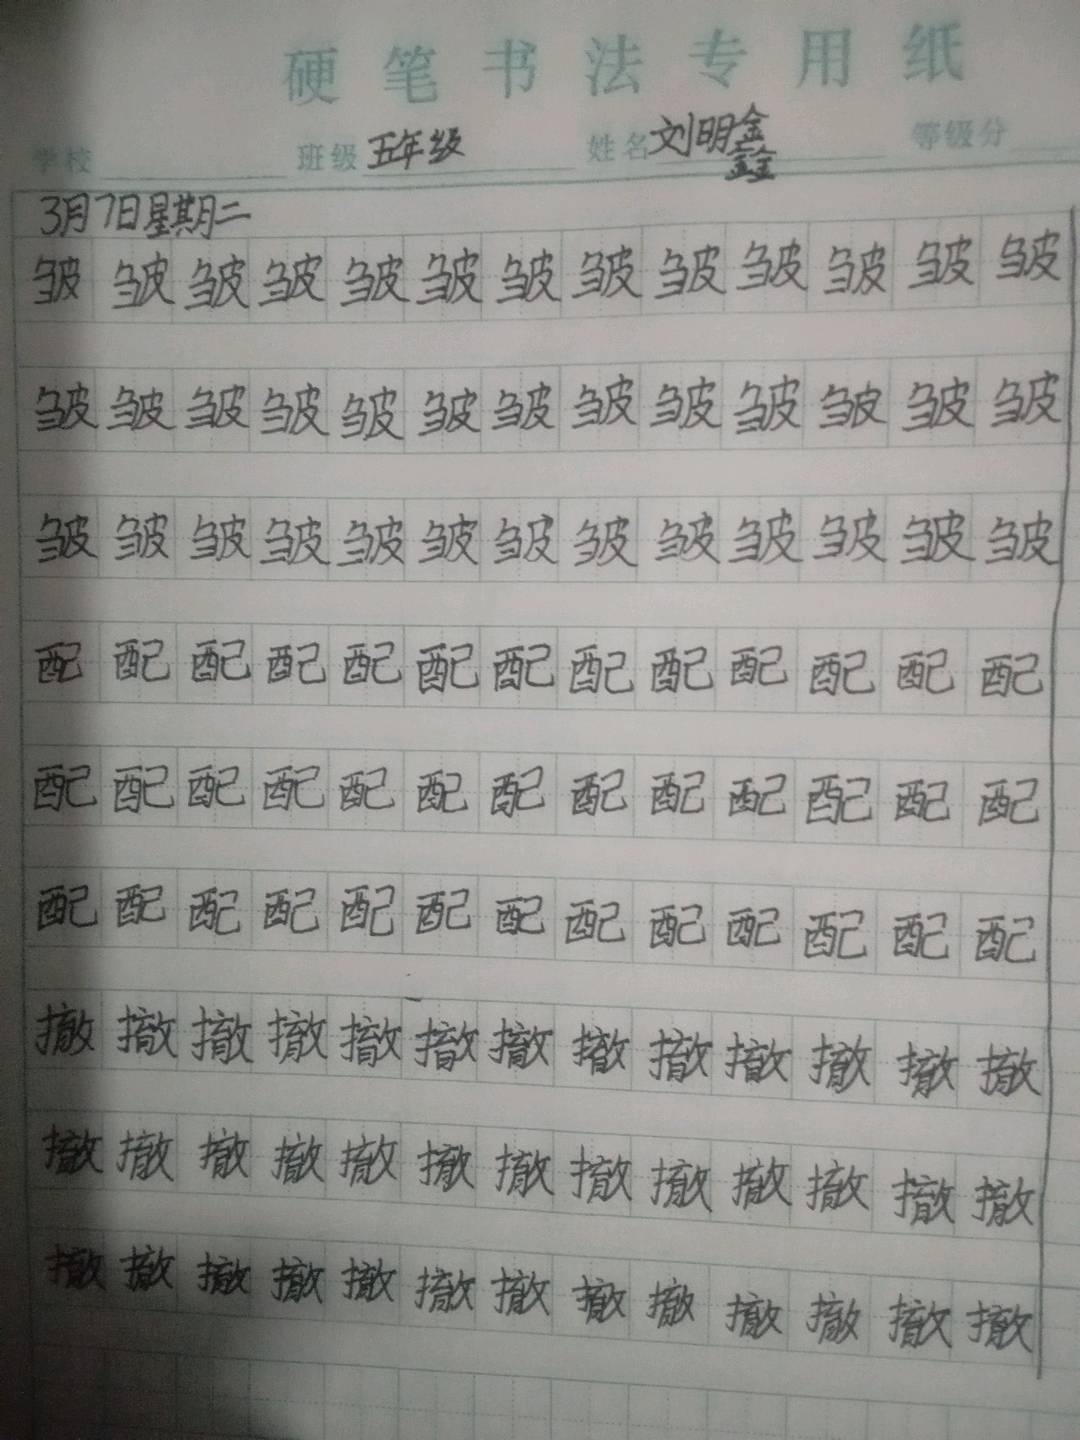 硬笔书法专用纸
学校 班级 五年级 姓名 刘明鑫 等级分
3月7日星期二
皱皱皱皱皱皱皱皱皱皱皱皱皱
皱皱皱皱皱皱皱皱皱皱皱皱皱
皱皱皱皱皱皱皱皱皱皱皱皱皱
配配配配配配配配配配配配配
配配配配配配配配配配配配配
配配配配配配配配配配配配配
撤撤撤撤撤撤撤撤撤撤撤撤撤
撤撤撤撤撤撤撤撤撤撤撤撤撤
撤撤撤撤撤撤撤撤撤撤撤撤撤